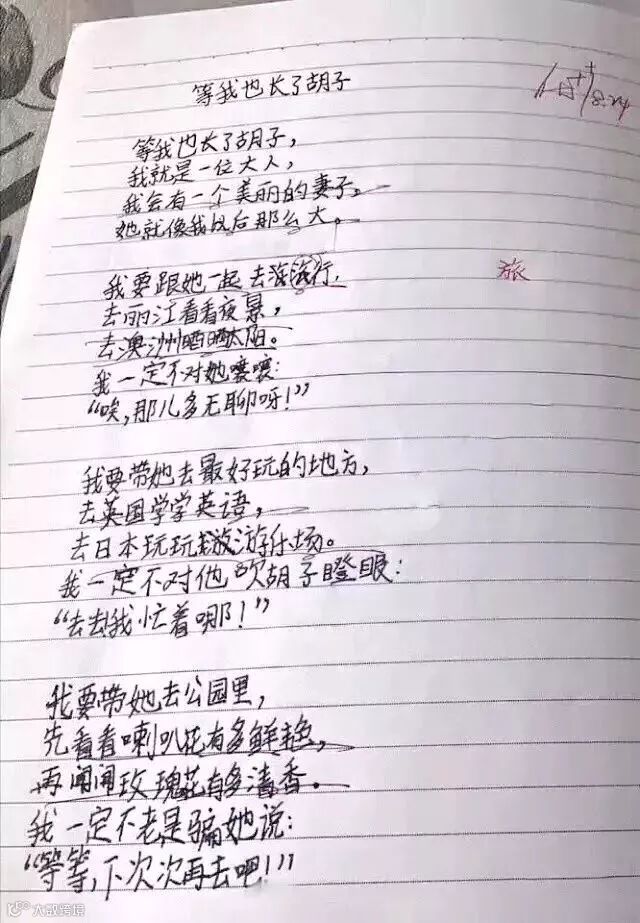 等我也长了胡子
等我也长了胡子,
我就是一位大人,
我会有一个美丽的妻子。
她就像我以后那么大。
我要跟她一起去海行,
旅
去丽江看看夜景,
去澳洲晒晒太阳。
我一定不对她嚷嚷:
“唉,那儿多无聊呀!”
我要带她去最好玩的地方,
去英国学学英语,
去日本玩玩游乐场。
我一定不对他吹胡子瞪眼:
“去去我忙着哪!”
我要带她去公园里,
先看看喇叭花有多鲜艳,
再闻闻玫瑰花有多清香。
我一定不老是骗她说:
“等等,下次次再去吧!”
大数跨境